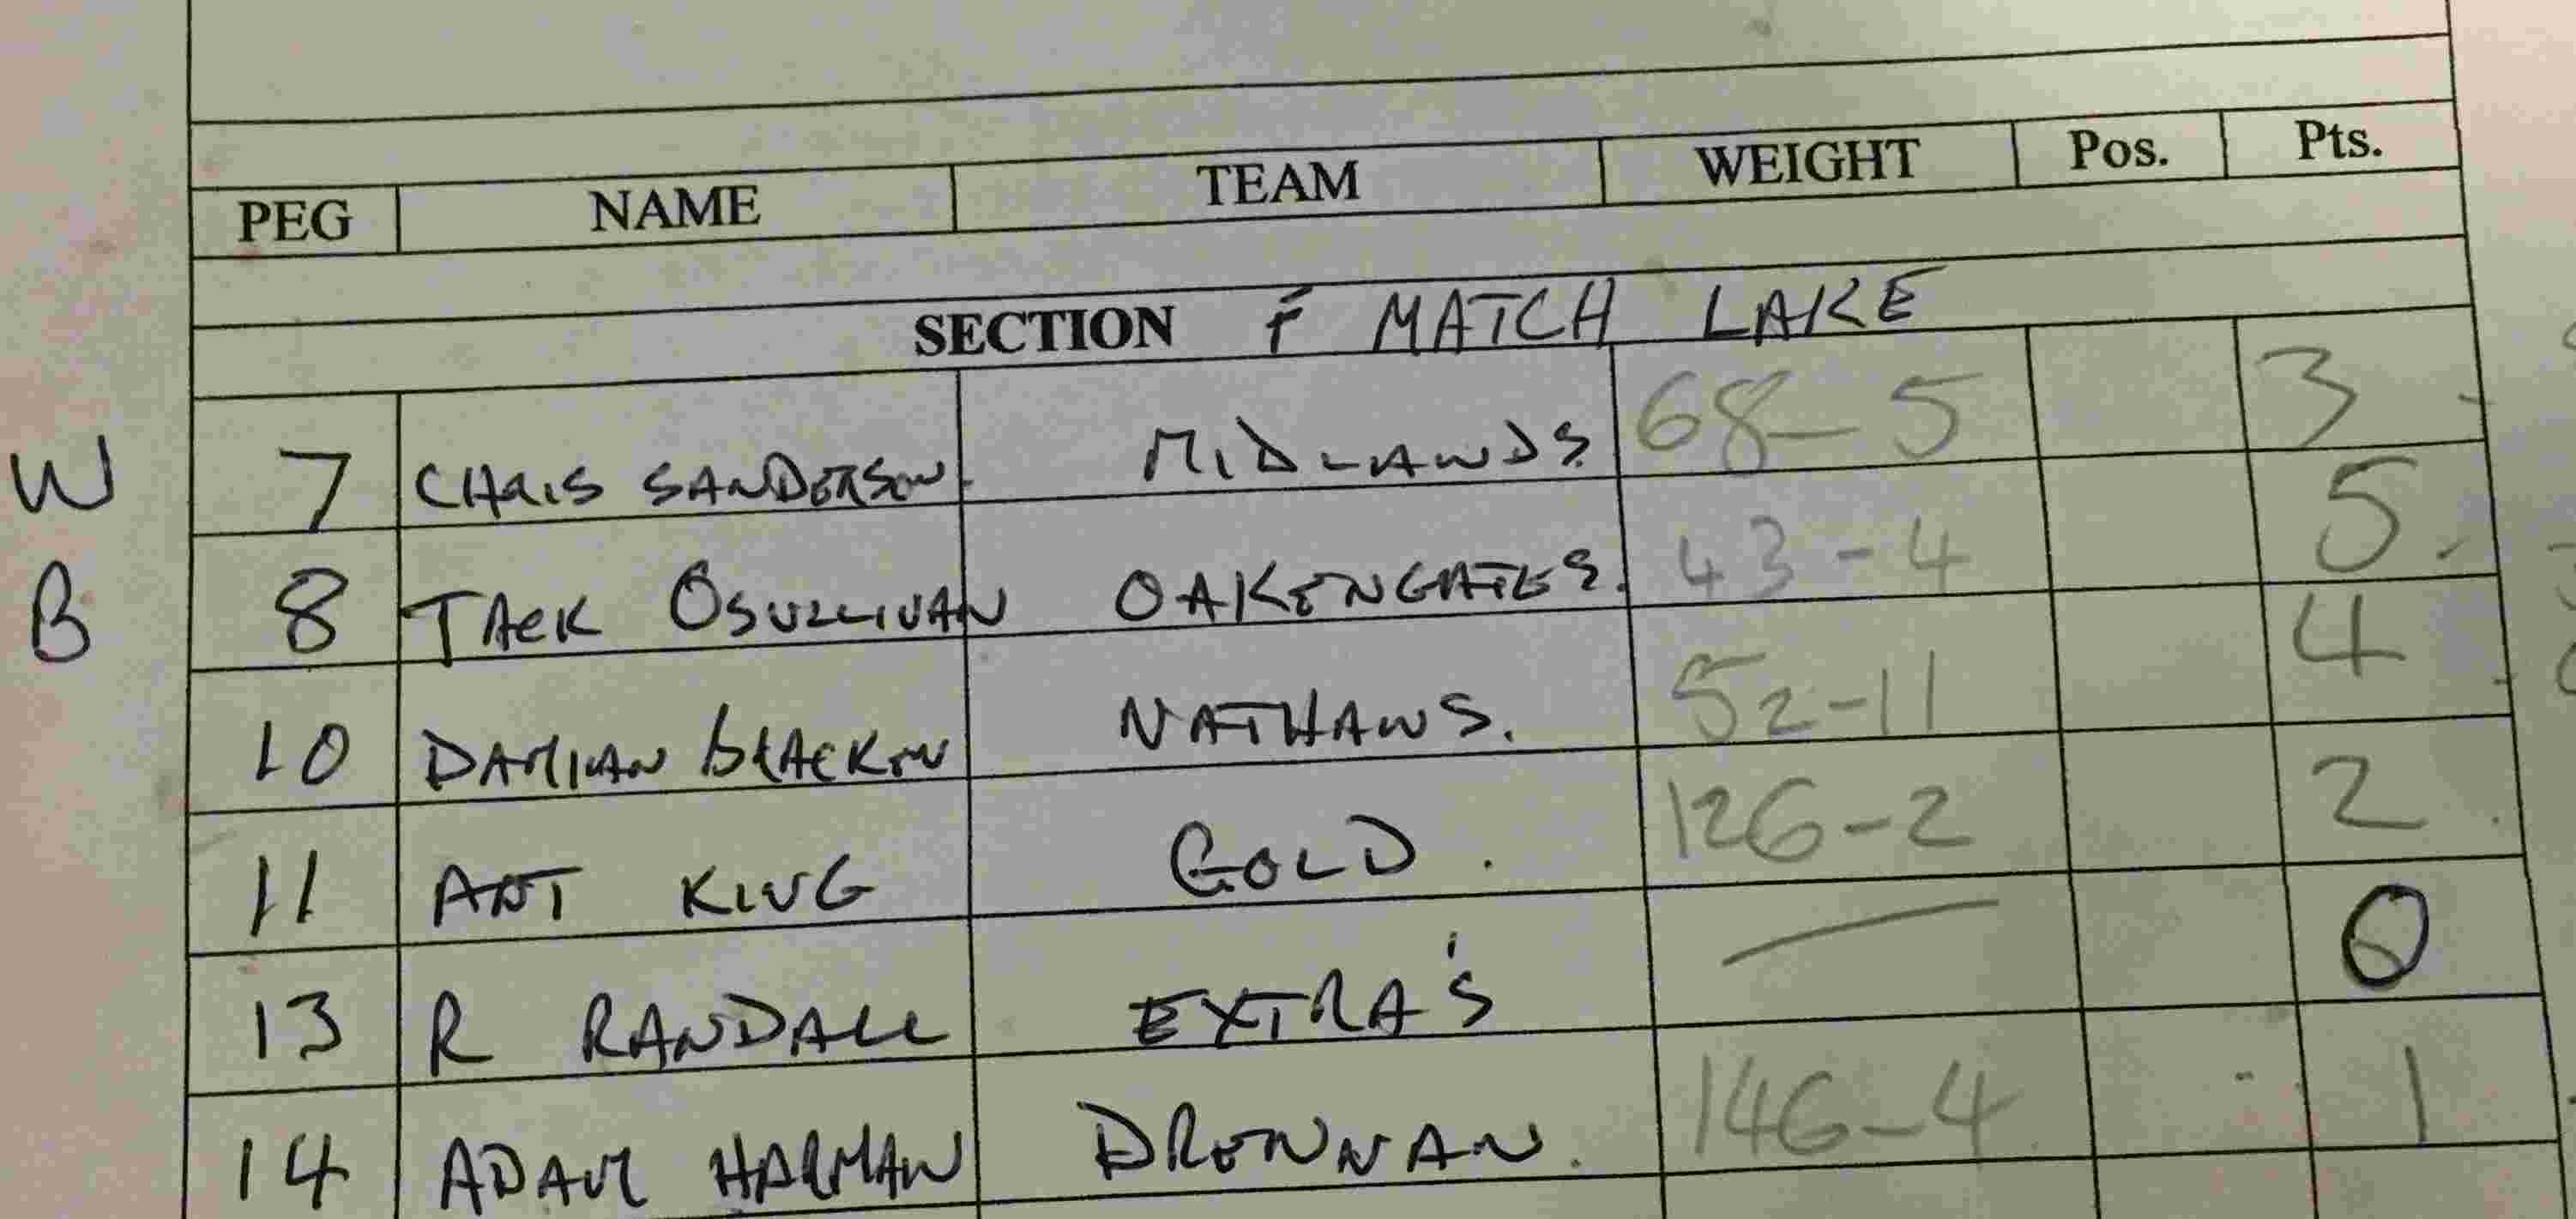 PEG NAME TEAM WEIGHT Pos. Pts.
SECTION F MATCH LAKE
W 7 CHRIS SANDERSON MIDLANDS. 68-5 3
B 8 JACK OSULLIVAN OAKENGATES. 43-4 5
10 DAMIAN BRACKEN NATHANS. 52-11 4
11 ANT KING GOLD. 126-2 2
13 R RANDALL EXTRA'S — 0
14 ADAM HARMAN DRENNAN. 146-4 1